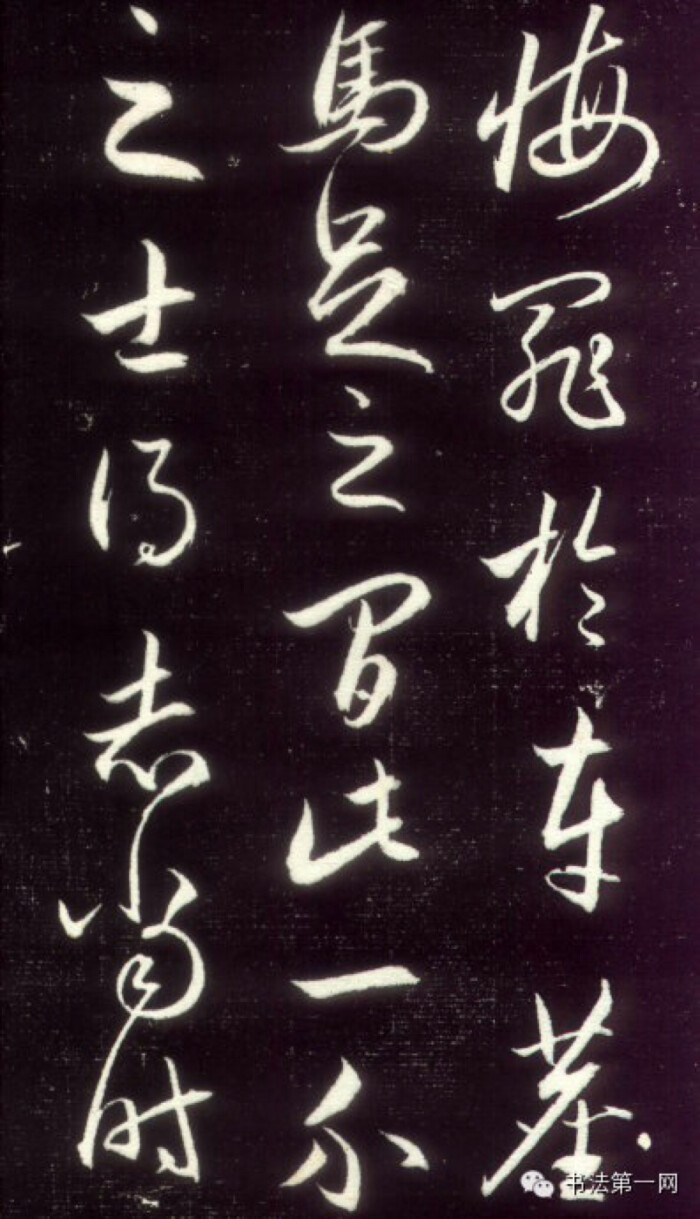 悔罪於車塵
馬足之間此一介
之士得志當時
书法第一网